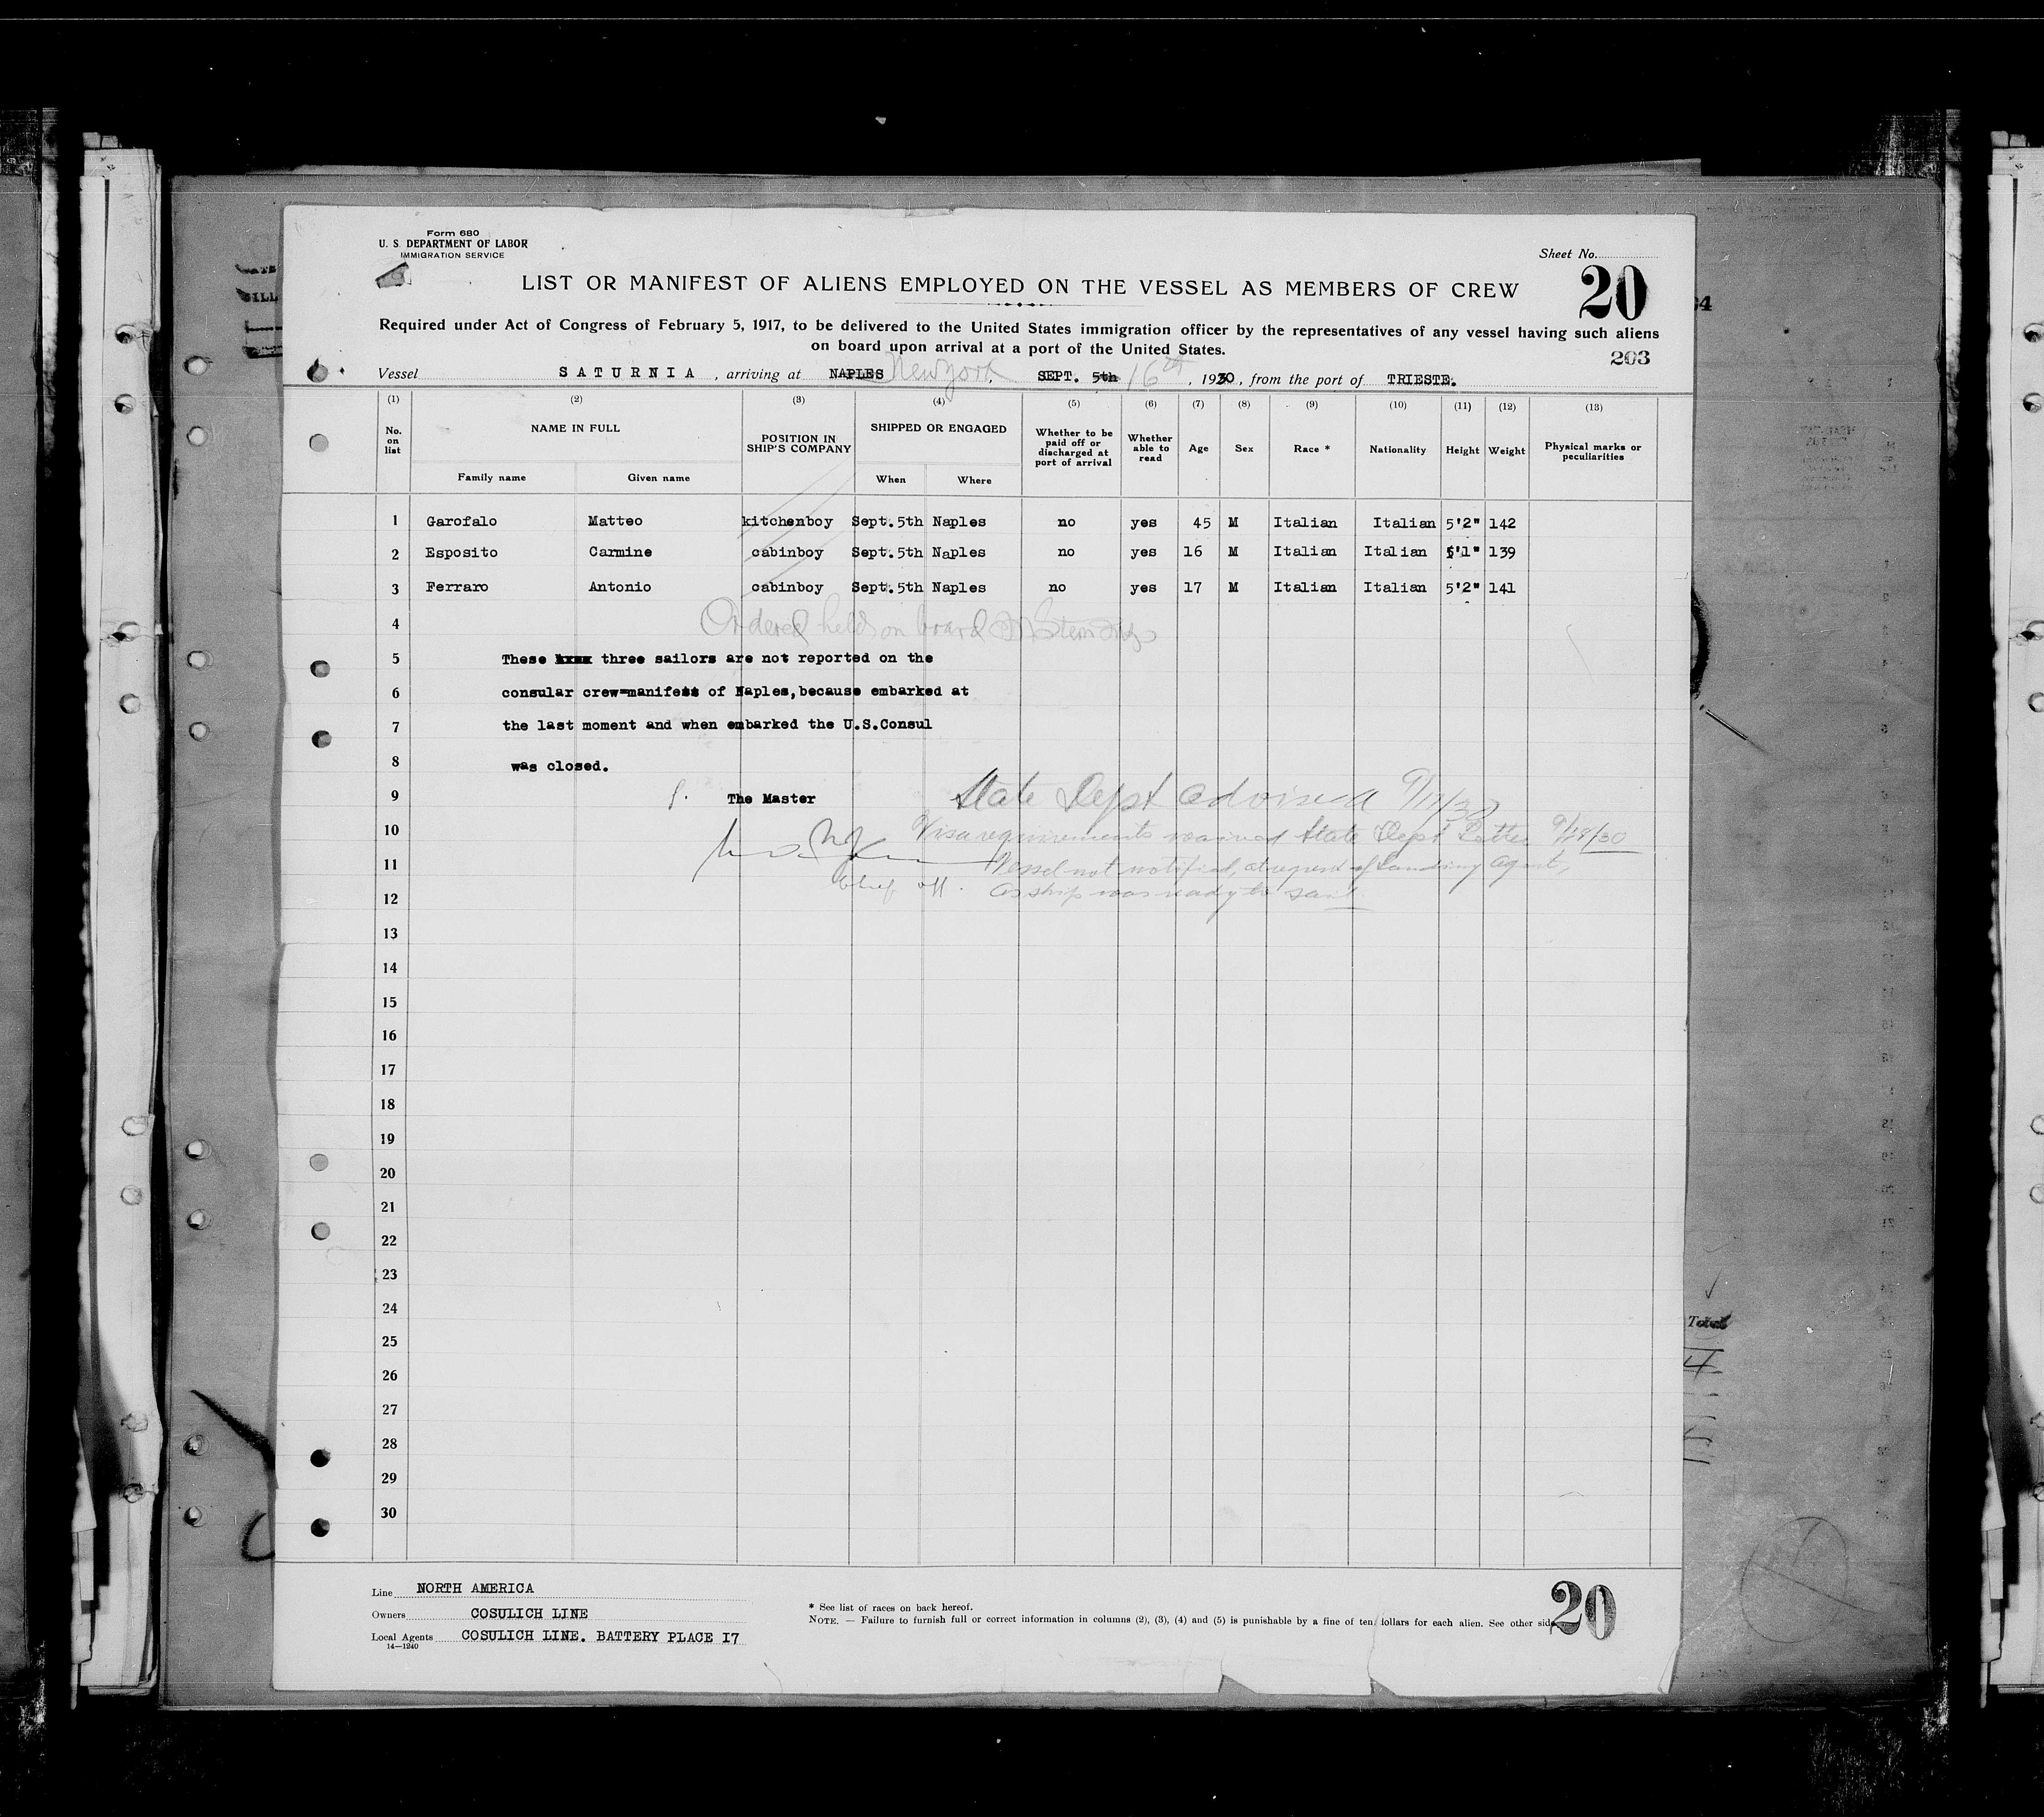 Form 680
U. S. DEPARTMENT OF LABOR
IMMIGRATION SERVICE
Sheet No.
20
LIST OR MANIFEST OF ALIENS EMPLOYED ON THE VESSEL AS MEMBERS OF CREW
Required under Act of Congress of February 5, 1917, to be delivered to the United States immigration officer by the representatives of any vessel having such aliens
on board upon arrival at a port of the United States.
203
Vessel SATURNIA, arriving at NAPLES New York, SEPT. 5th 16th, 1930, from the port of TRIESTE.
(1) (2) (3) (4) (5) (6) (7) (8) (9) (10) (11) (12) (13)
No. on list NAME IN FULL POSITION IN SHIP'S COMPANY SHIPPED OR ENGAGED Whether to be paid off or discharged at port of arrival Whether able to read Age Sex Race * Nationality Height Weight Physical marks or peculiarities
Family name Given name When Where
1 Garofalo Matteo kitchenboy Sept.5th Naples no yes 45 M Italian Italian 5'2" 142
2 Esposito Carmine cabinboy Sept.5th Naples no yes 16 M Italian Italian 5'1" 139
3 Ferraro Antonio cabinboy Sept.5th Naples no yes 17 M Italian Italian 5'2" 141
4 Ordered held on board
5 These three sailors are not reported on the
6 consular crew=manifest of Naples, because embarked at
7 the last moment and when embarked the U.S.Consul
8 was closed.
9 The Master State Dept advised 9/17/30
10 Visa requirements waived State Dept Letter 9/18/30
11 Vessel not notified, at request of Landing Agent,
12 Chief off. As ship was ready to sail
13
14
15
16
17
18
19
20
21
22
23
24
25
26
27
28
29
30
Total
4
Line NORTH AMERICA
Owners COSULICH LINE
Local Agents COSULICH LINE. BATTERY PLACE 17
14—1240
* See list of races on back hereof.
NOTE. — Failure to furnish full or correct information in columns (2), (3), (4) and (5) is punishable by a fine of ten dollars for each alien. See other side
20